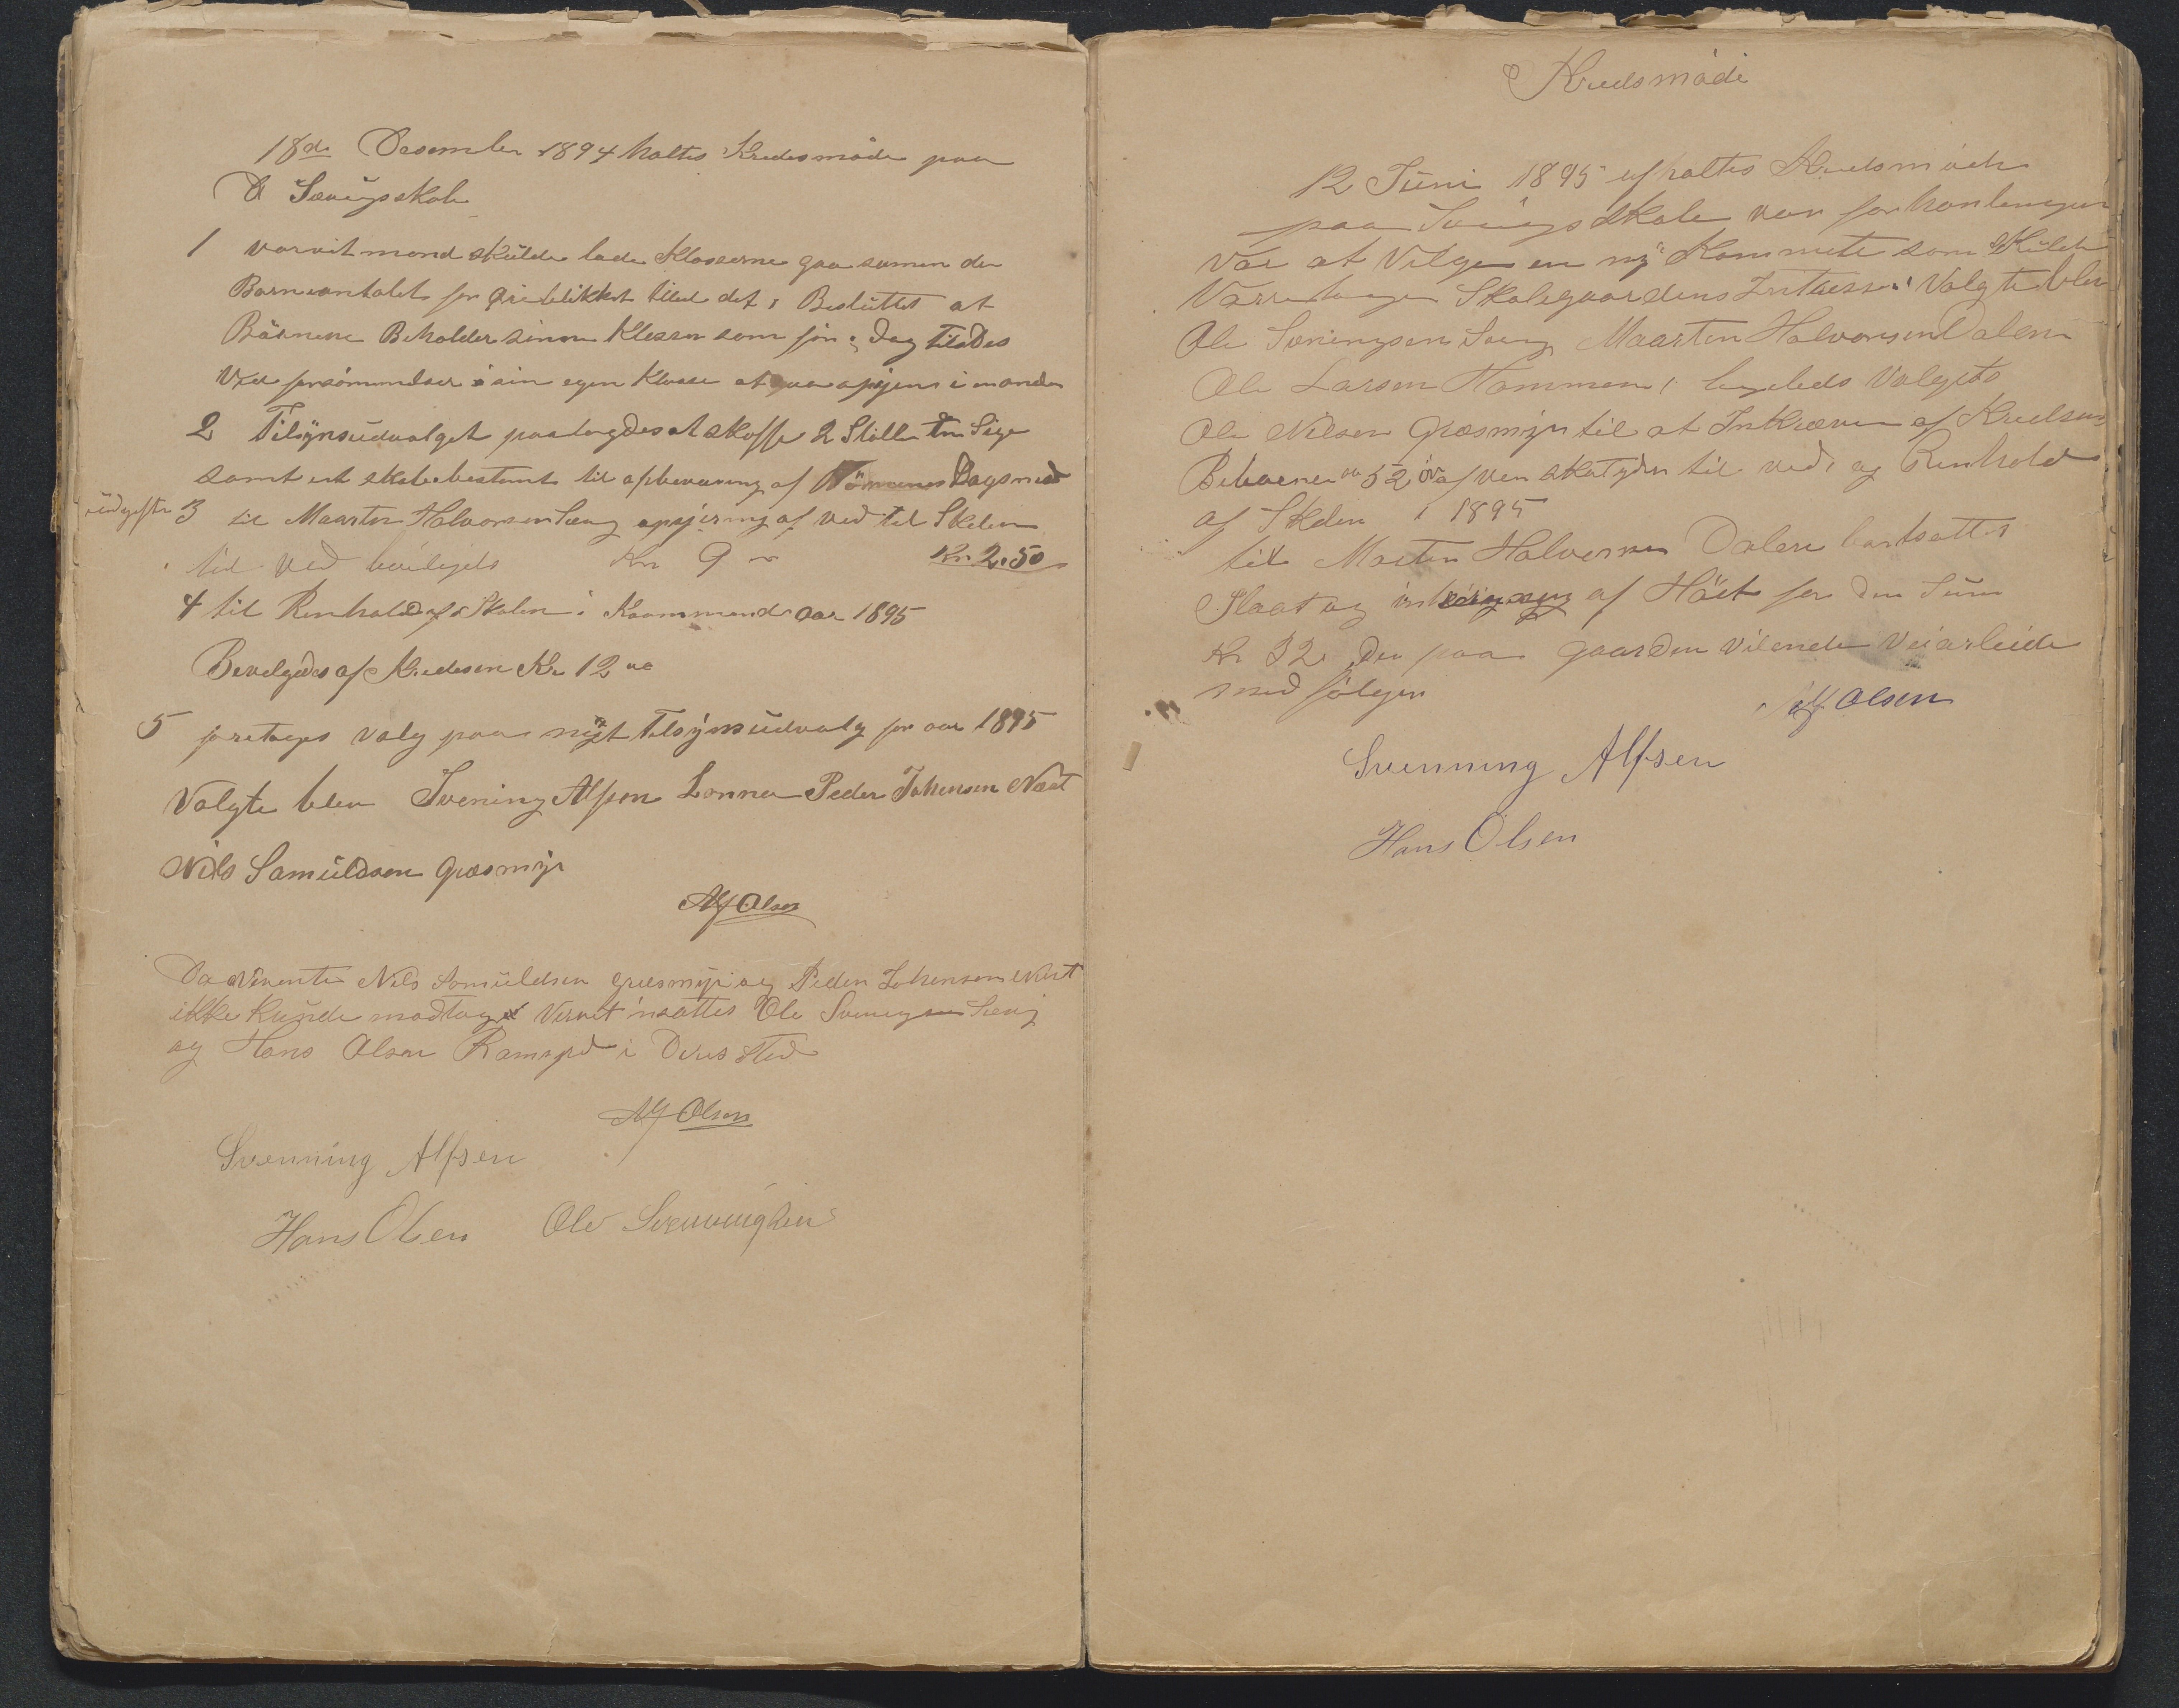 18de Desember 1894 holtes Kredsmöde paa
Sveigs skole
1 vorvit mand skulde lade Klasserne gaa samen da
Barneantalet for Øieblikket tilod det, Besluttet at
Börnene Beholder sinne Klesser som för; Dog tilodes
Ved forsömmelser i sin egen Klasse at gaa opigjen i manden
2 Tilsynsudvalget paalagdes at skaffe 2 Stoller
samt et skab bestemt til opbevaring af Dagsmad
udgifter 3 til Maarten Halvorsen opsjering af ved til Skolen Kr. 2.50
til ved bevilgets Kr 9
4 til Renhold af Skolen i Kommende aar 1895
Bevelgedes af Kredesen Kr 12
5 foretoges valg paa nyt Tilsynsudvalg for aar 1895
Valgte blev Svening Alfsen Lonna Peder Johensen
Nils Samuldsen Græsmyr
Alf Olsen
Da Nils Somuldsen Græsmyr og Peder Johensen
ikke Kunde modtage Vervet insattes Ole Sveningsen
og Hans Olsen i Deres sted
Alf Olsen
Svenning Alfsen
Hans Olsen Ole Svenningsen
Kredsmöde
12 Juni 1895 afholtes Kredsmöde
paa Skole var forhanlingen
Var at Velge en ny Kommete som Skulde
Varetage Skolegaardens Intresser Valgte blev
Ole Sveningsen Maarten Halvorsen Dalen
Ole Larsen Hammeren, legeleds Valgets
Ole Nilsen Græsmyr til at Inkræve af Kredsens
Beboerne 52 öre af ver skatyder til ved, og Renhold
af Skolen i 1895
til Maarten Halvorsen Dalen bortsattes
Slaat og inkjöring af Höiet for den Sum
Kr 32 Den paa Gaarden Vilende Veiarbeide
med fölger
Alf Olsen
Svenning Alfsen
Hans Olsen